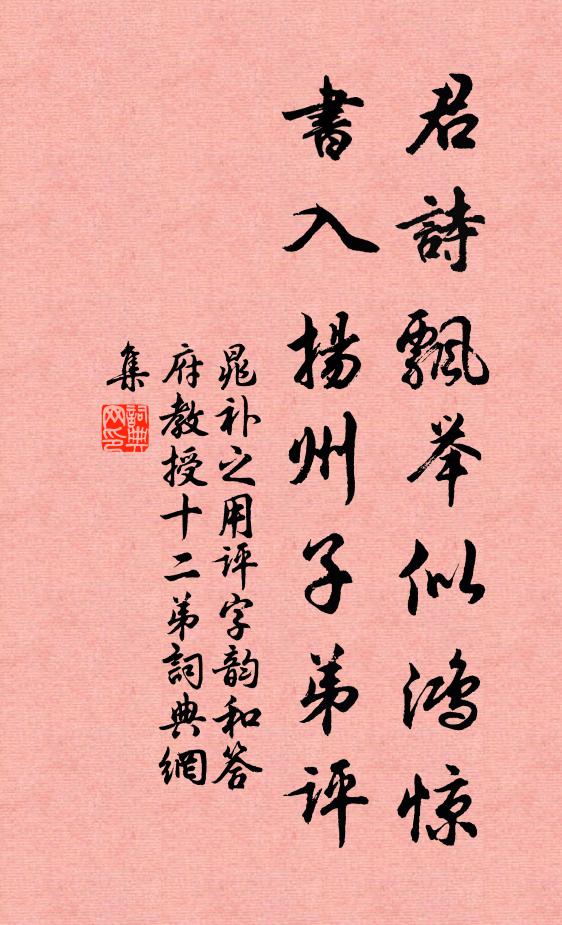 君詩飄举似鴻惊
書入揚州子弟评
晁补之用评字韵和答
府教授十二弟詞典網
集
詞典網印